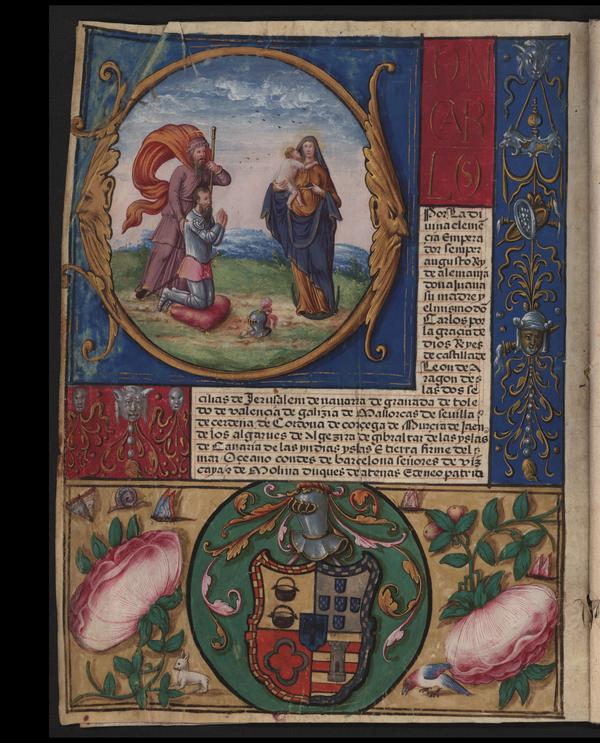 DON
CAR
LOS
Por la di
uina cleme
cia Empera
dor semper
augusto Rey
de alemania
doña Juana
su madre y
el mismo dõ
Carlos por
la gracia de
dios Reyes
de castilla de
Leon de A
ragon de s
las dos se
cilias de Jerusalem de nauarra de granada de tole
do de valencia de galizia de Mallorcas de seuilla
de cerdeña de Cordoua de corcega de Murcia de Jaen
de los algarues de Algezira de gibraltar de las yslas
de Canaria de las yndias yslas E tierra firme del
mar Oceano condes de barcelona señores de viz
caya z de Molina duques de atenas E de neo patria